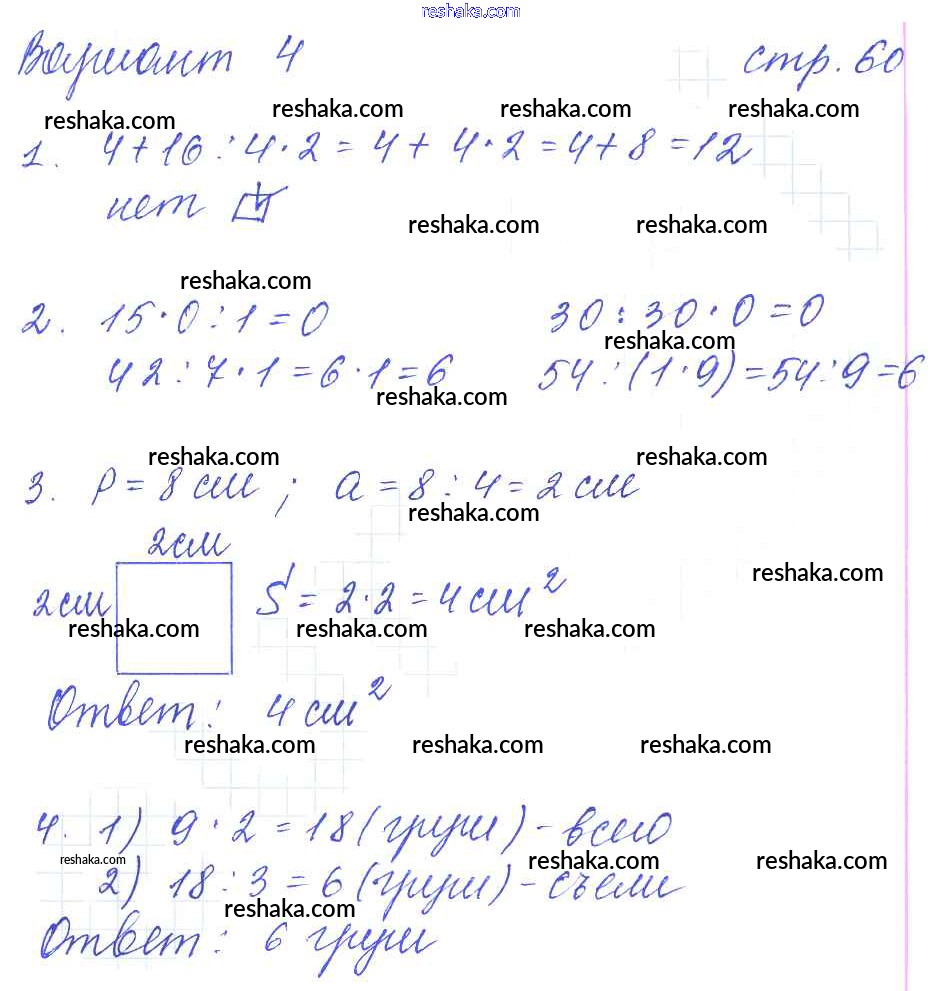 reshaka.com
Вариант 4 стр. 60
reshaka.com reshaka.com reshaka.com reshaka.com
1. 4+16:4·2=4+4·2=4+8=12
нет
reshaka.com reshaka.com
reshaka.com
2. 15·0:1=0 30:30·0=0
reshaka.com
42:7·1=6·1=6 54:(1·9)=54:9=6
reshaka.com
reshaka.com reshaka.com
3. P=8 см; a=8:4=2 см
reshaka.com
2см
reshaka.com
2см S=2·2=4 см²
reshaka.com reshaka.com reshaka.com
Ответ: 4 см²
reshaka.com reshaka.com reshaka.com
4. 1) 9·2=18 (груш) - всего
reshaka.com reshaka.com reshaka.com
2) 18:3=6 (груш) - съели
reshaka.com
Ответ: 6 груш